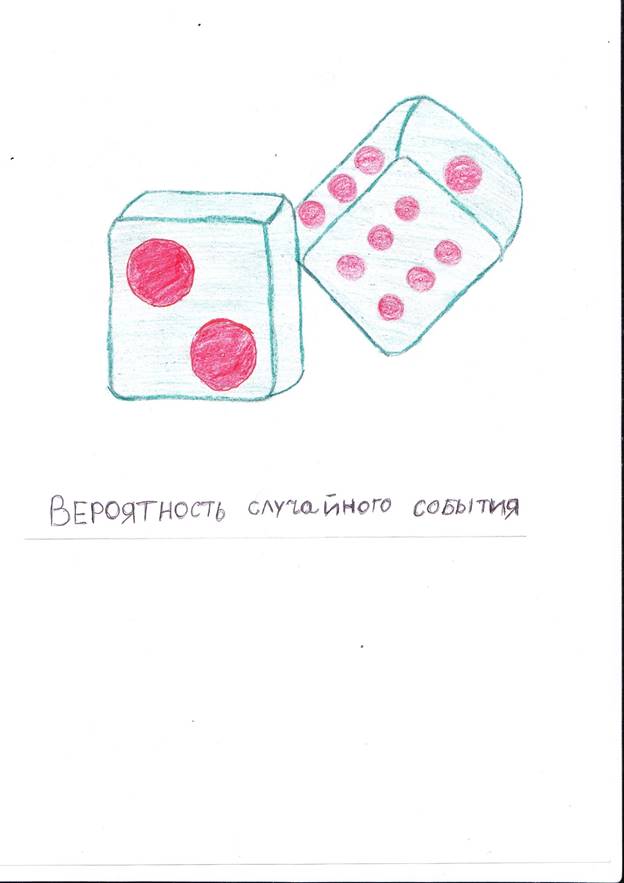 ВЕРОЯТНОСТЬ случайного события